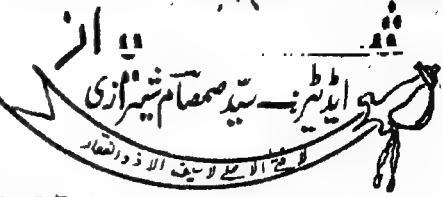 ایڈیٹر۔ سیّد صمصام شیرازی
لا فتی الا علی لا سیف الا ذوالفقار